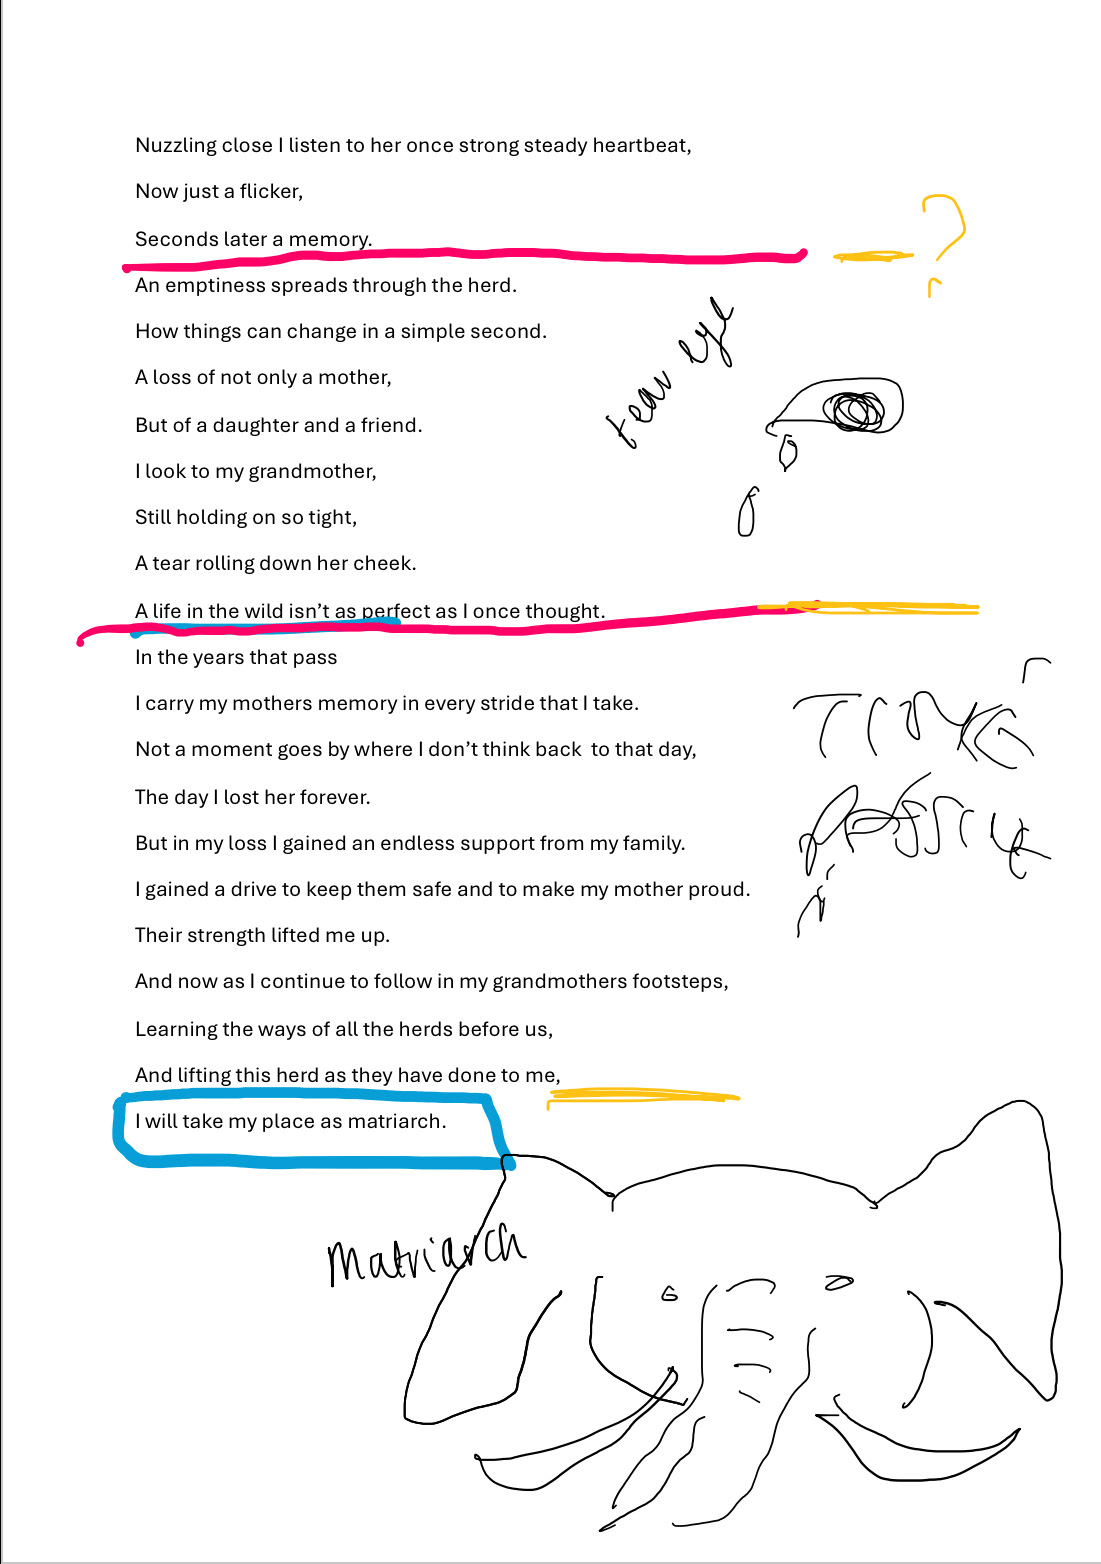 Nuzzling close I listen to her once strong steady heartbeat,
Now just a flicker,
Seconds later a memory.
?
An emptiness spreads through the herd.
How things can change in a simple second.
tear eye
A loss of not only a mother,
But of a daughter and a friend.
I look to my grandmother,
Still holding on so tight,
A tear rolling down her cheek.
A life in the wild isn’t as perfect as I once thought.
In the years that pass
I carry my mothers memory in every stride that I take.
TIME
Not a moment goes by where I don’t think back  to that day,
The day I lost her forever.
But in my loss I gained an endless support from my family.
I gained a drive to keep them safe and to make my mother proud.
Their strength lifted me up.
And now as I continue to follow in my grandmothers footsteps,
Learning the ways of all the herds before us,
And lifting this herd as they have done to me,
I will take my place as matriarch.
Matriarch